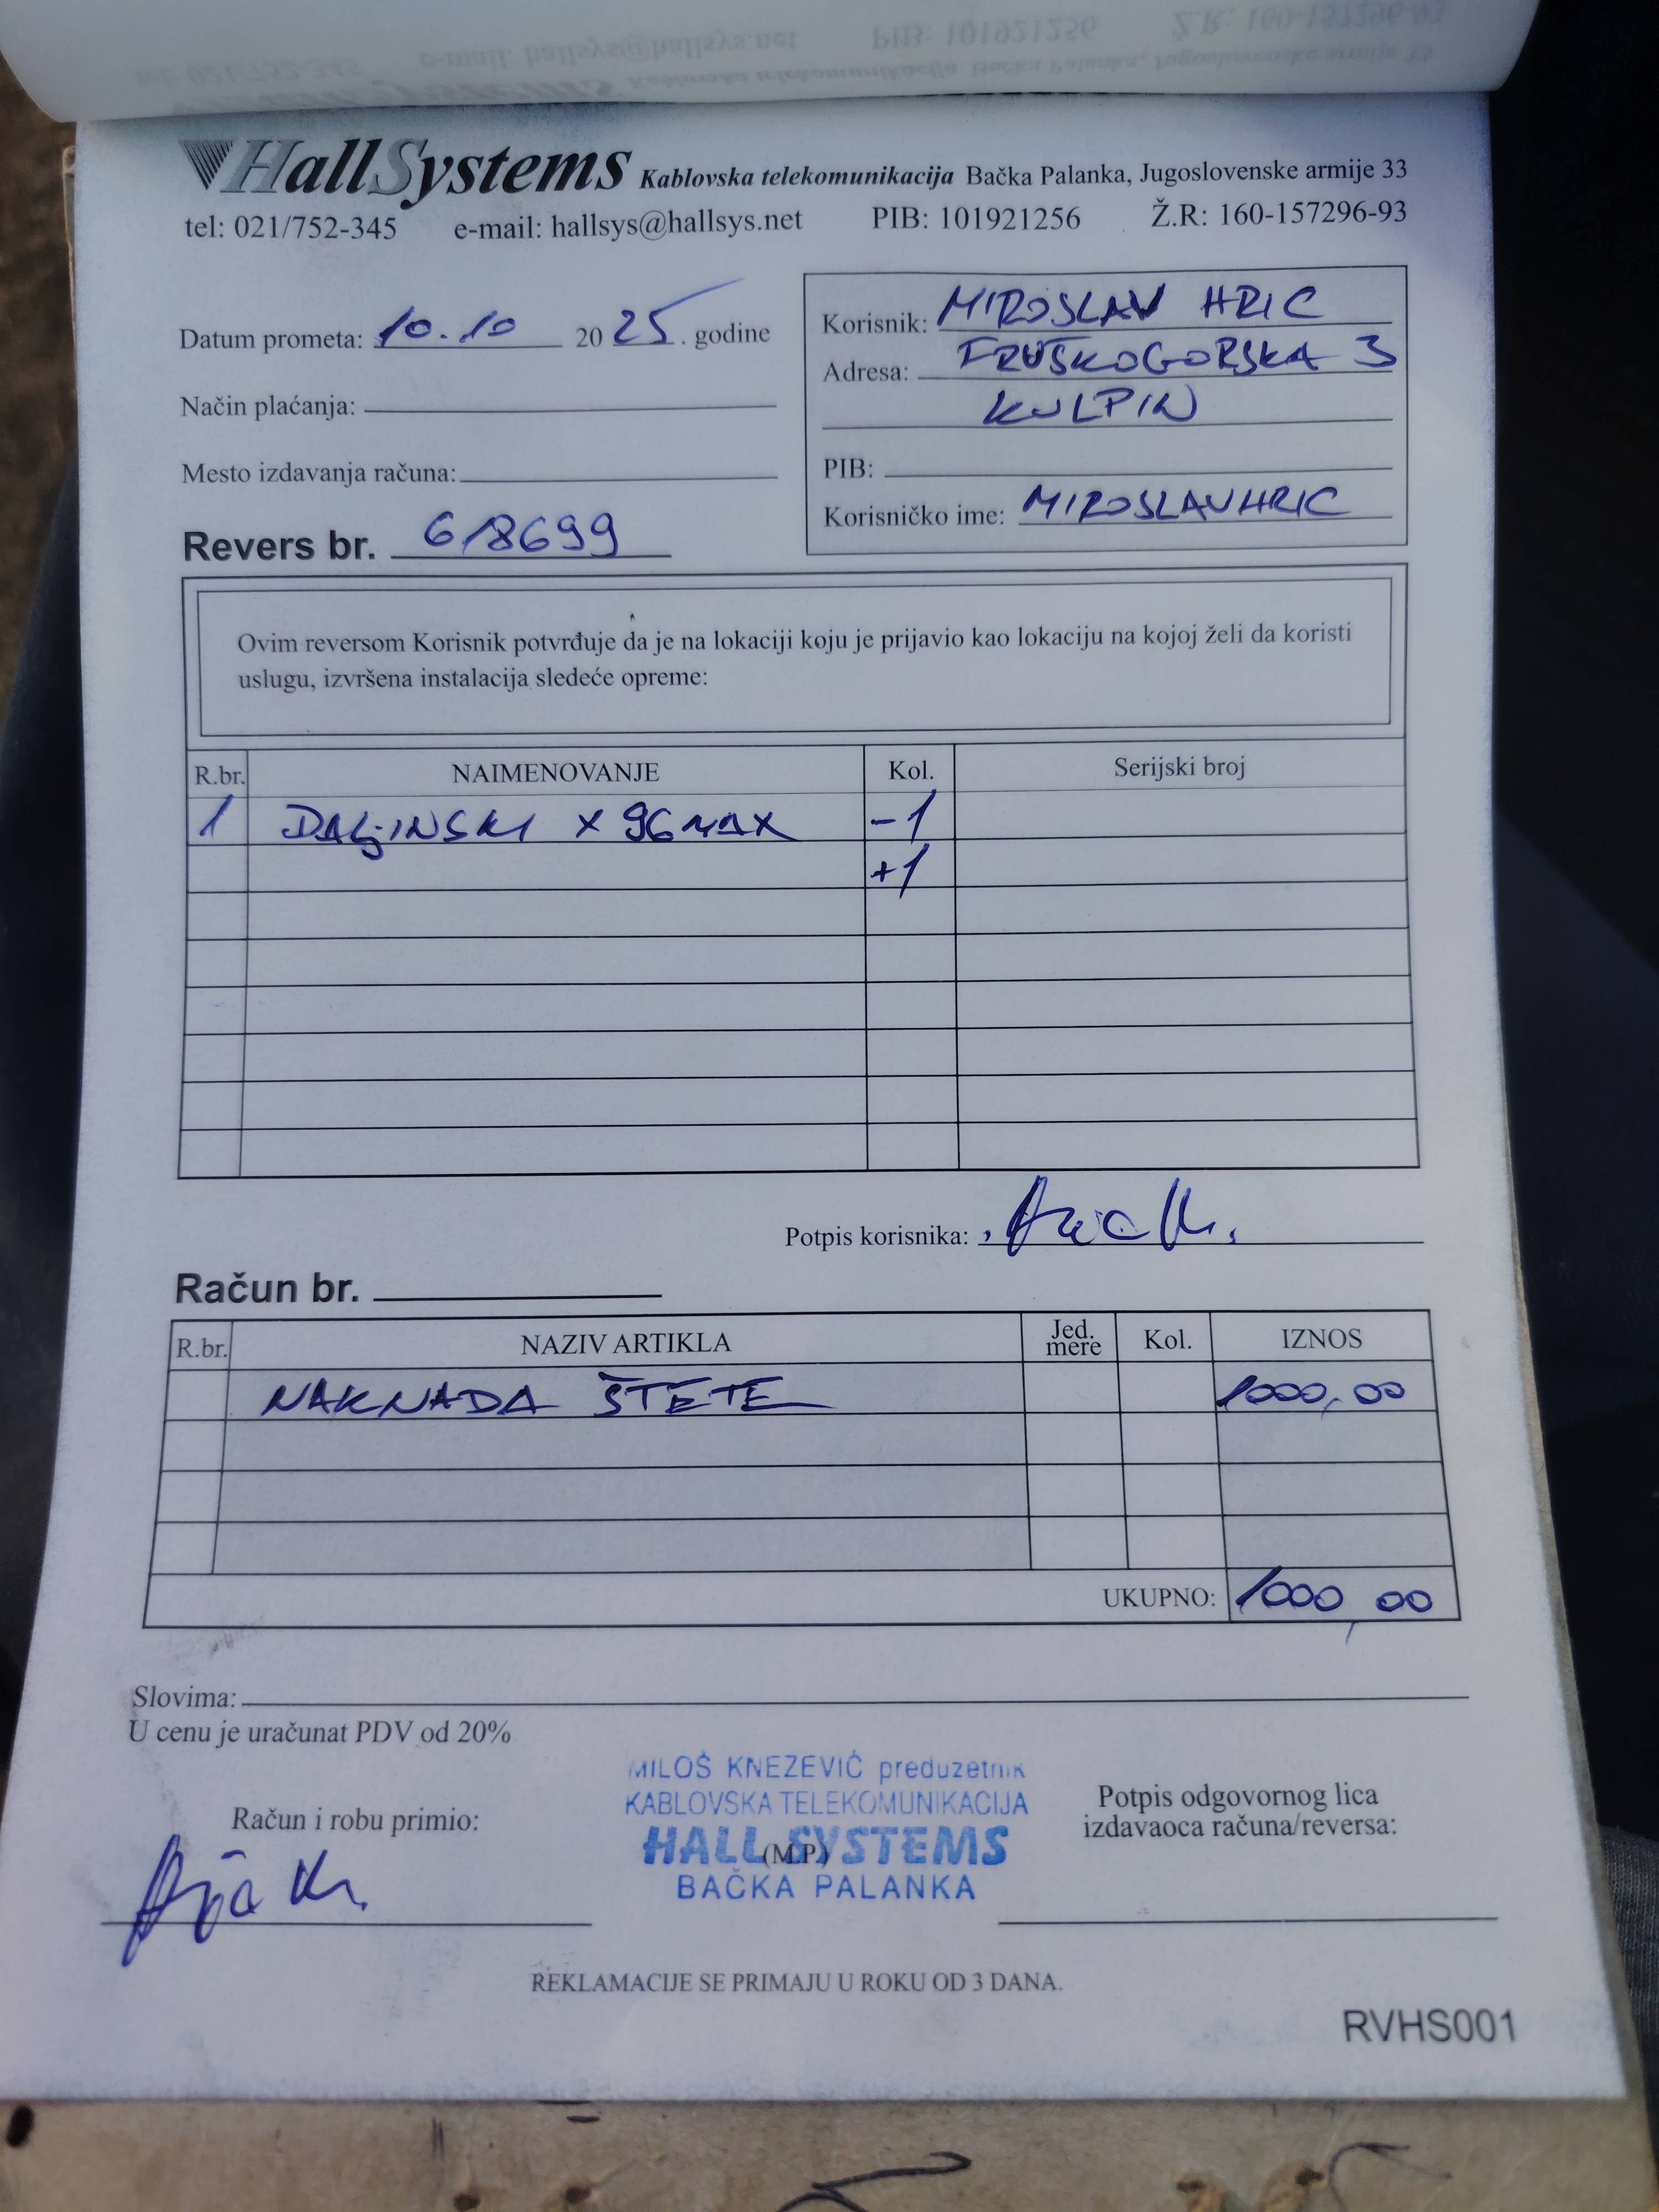 HallSystems Kablovska telekomunikacija Bačka Palanka, Jugoslovenske armije 33
tel: 021/752-345 e-mail: hallsys@hallsys.net PIB: 101921256 Ž.R: 160-157296-93
Datum prometa: 10.10 2025. godine
Način plaćanja:
Mesto izdavanja računa:
Revers br. 6/8699
Korisnik: MIROSLAV HRIC
Adresa: FRUŠKOGORSKA 3
KULPIN
PIB:
Korisničko ime: MIROSLAVHRIC
Ovim reversom Korisnik potvrđuje da je na lokaciji koju je prijavio kao lokaciju na kojoj želi da koristi
uslugu, izvršena instalacija sledeće opreme:
R.br. NAIMENOVANJE Kol. Serijski broj
1 DALJINSKI X96MAX -1
+1
Potpis korisnika:
Račun br.
R.br. NAZIV ARTIKLA Jed. mere Kol. IZNOS
NAKNADA ŠTETE 1000,00
UKUPNO: 1000,00
Slovima:
U cenu je uračunat PDV od 20%
Račun i robu primio:
MILOŠ KNEZEVIĆ preduzetnik
KABLOVSKA TELEKOMUNIKACIJA
HALL SYSTEMS
(M.P.)
BAČKA PALANKA
Potpis odgovornog lica
izdavaoca računa/reversa:
REKLAMACIJE SE PRIMAJU U ROKU OD 3 DANA.
RVHS001